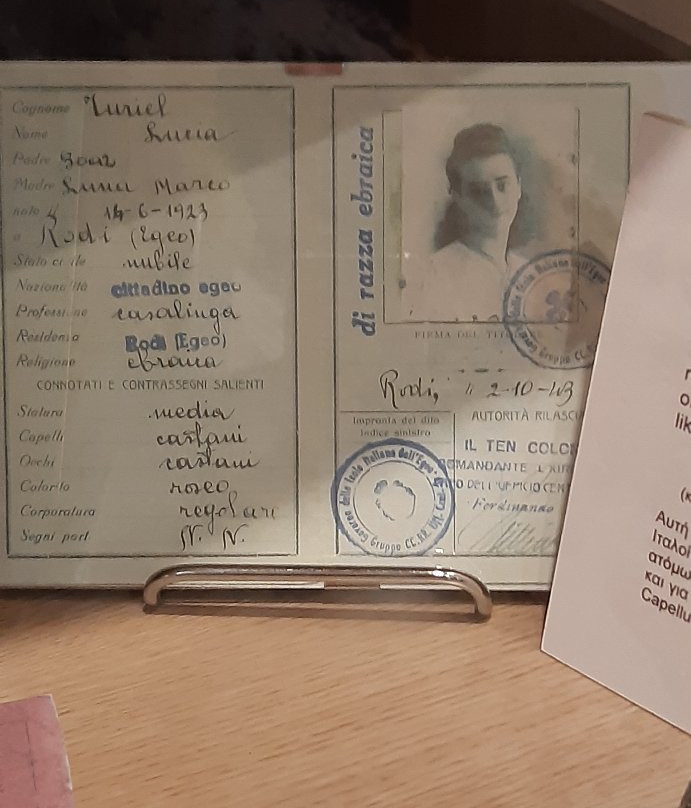 Cognome Turiel
Nome Lucia
Padre
Madre Luna Marco
nato il 14-6-1923
a Rodi (Egeo)
Stato civile nubile
Nazionalità cittadino egeo
Professione casalinga
Residenza Rodi (Egeo)
Religione ebraica
CONNOTATI E CONTRASSEGNI SALIENTI
Statura media
Capelli castani
Occhi castani
Colorito roseo
Corporatura regolare
Segni part N. N.
di razza ebraica
Governo delle Isole Italiane dell'Egeo
FIRMA DEL TIT
Rodi, li 2-10-43
Impronta del dito
indice sinistro
AUTORITÀ RILASC
IL TEN COLO
COMANDANTE L'
DELL'UFFICIO CEN
Ferdinando
Governo delle Isole Italiane dell'Egeo Gruppo CC.RR.
Αυτή
Ιταλοί
ατόμω
και για
Capellu